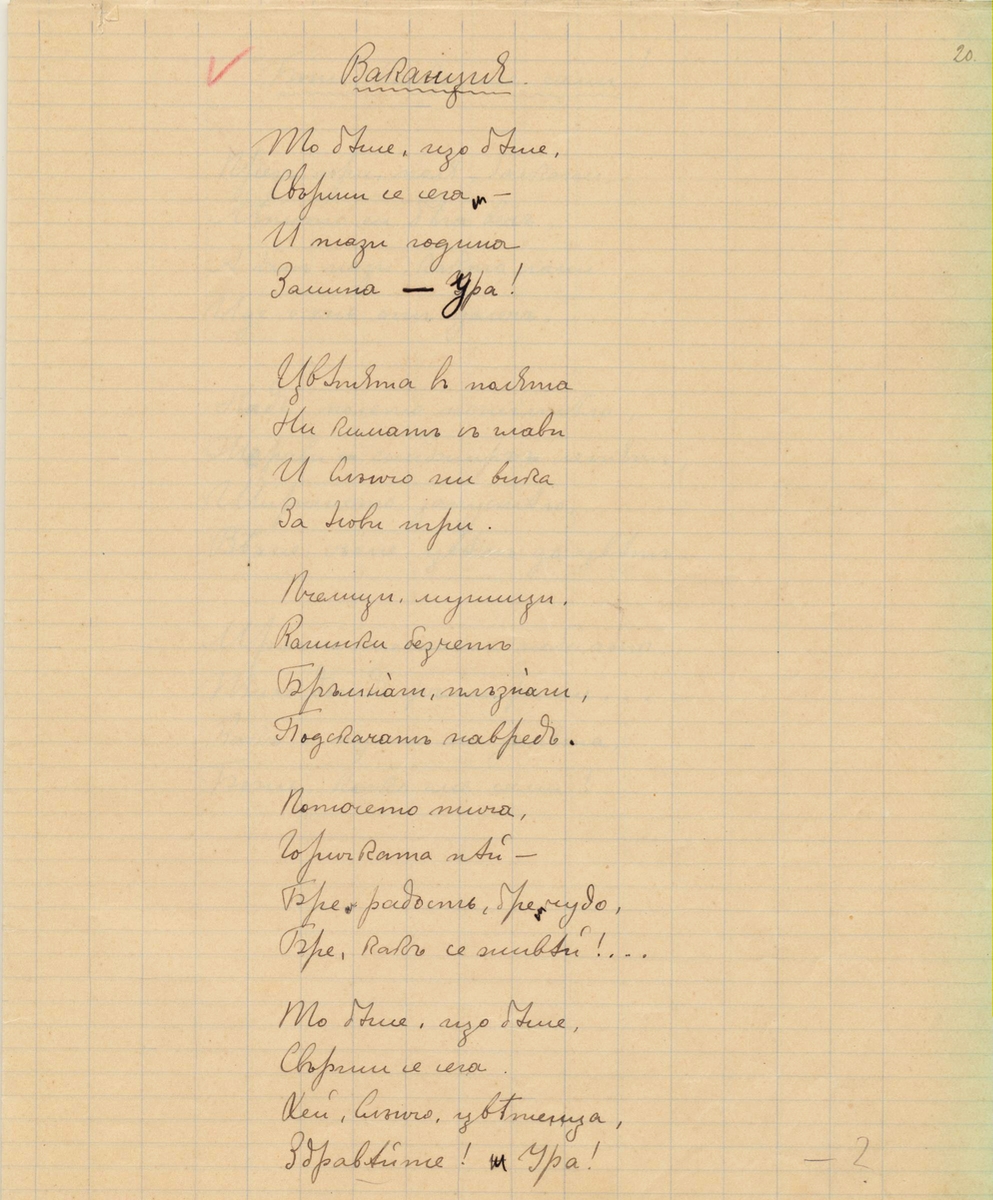 20.
Ваканция.
То бѣше, що бѣше,
Свърши се сега –
И тази година
Замина — Ура!
Цвѣтята въ полята
Ни киматъ съ глави
И Слънчо ни вика
За нови игри.
Пчелици, мушици,
Калинки безчетъ
Бръмнали, плъзнали,
Подскачатъ навредъ.
Поточето тича,
Горичката пѣй –
Бре, радость, бре, чудо,
Бре, какъ се живѣй!...
То бѣше, що бѣше,
Свърши се сега.
Хей, Слънчо, цвѣтенца,
Здравѣйте! Ура!
– 2